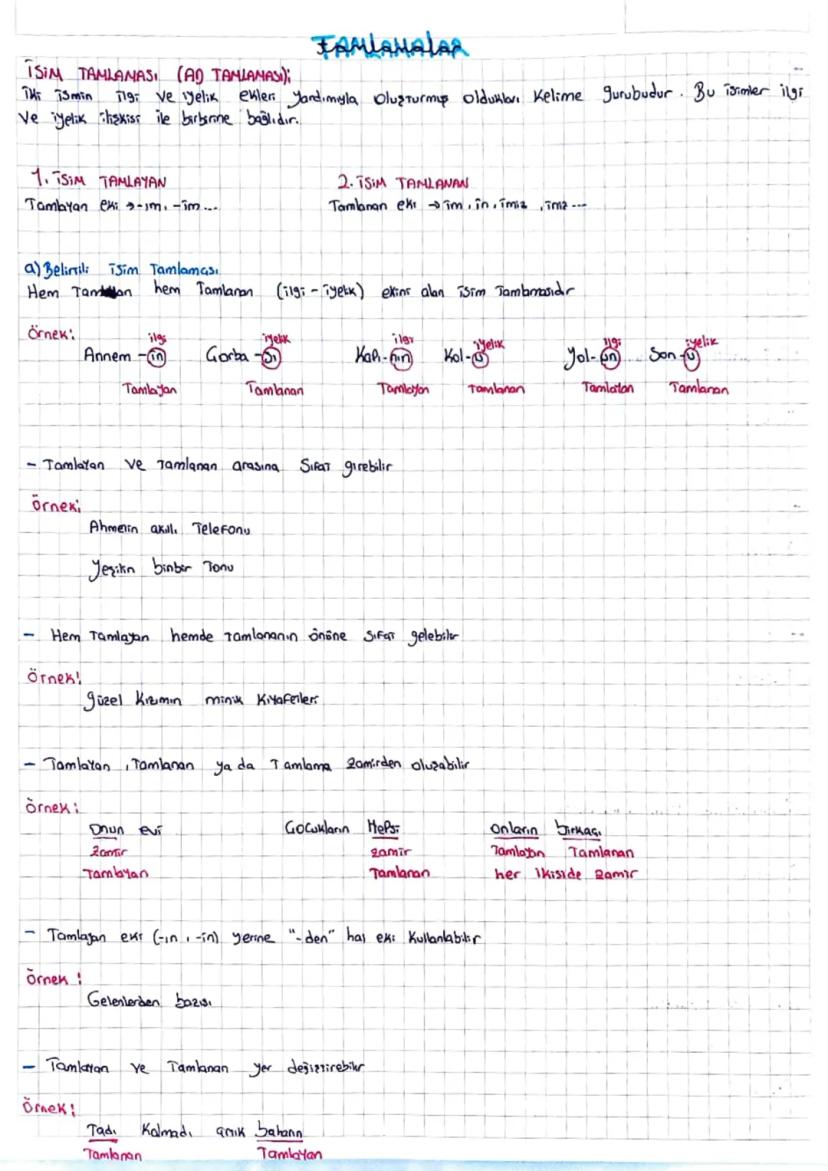 TAMLAMALAR
İSİM TAMLAMASI (AD TAMLAMASI);
İki ismin ilgi ve iyelik ekleri yardımıyla oluşturmuş oldukları kelime gurubudur. Bu isimler ilgi
ve iyelik ilişkisi ile birbirine bağlıdır.
1. İSİM TAMLAYAN 2. İSİM TAMLANAN
Tamlayan eki →-ım, -im... Tamlanan eki → im, in, imiz, imz ...
a) Belirtili isim Tamlaması
Hem Tamlayan hem Tamlanan (ilgi - iyelik) ekini alan isim Tamlamasıdır
Örnek: ilgi iyelik ilgi iyelik ilgi iyelik
Annem - in Çorba - sı Kapı - nın Kol - u Yol - un Son - u
Tamlayan Tamlanan Tamlayan Tamlanan Tamlayan Tamlanan
- Tamlayan ve Tamlanan arasına sıfat girebilir
Örnek;
Ahmetin akıllı Telefonu
Yeşilin binbir Tonu
- Hem Tamlayan hemde tamlananın önüne sıfat gelebilir
Örnek!
güzel kızımın minik kıyafetleri
- Tamlayan, Tamlanan ya da Tamlama zamirden oluşabilir
Örnek:
Onun evi Çocukların Hepsi onların birkaçı
zamir zamir Tamlayan Tamlanan
Tamlayan Tamlanan her ikiside zamir
- Tamlayan eki (-ın, -in) yerine "-den" hal eki kullanılabilir
Örnek:
Gelenlerden bazısı
- Tamlayan ve Tamlanan yer değiştirebilir
Örnek:
Tadı kalmadı artık baharın
Tamlanan Tamlayan